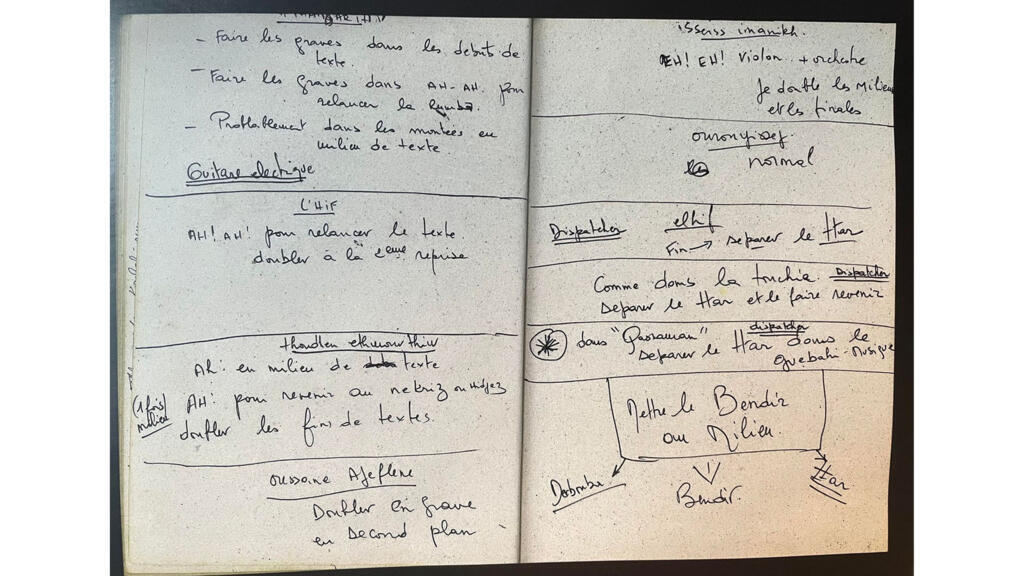 - Faire les graves dans les debuts de
texte.
- Faire les graves dans AH-AH. pour
relancer la rumba.
- Probablement dans les montées en
milieu de texte
Guitare electrique
L'HiF
AH! AH! pour relancer le texte
doubler à la 2eme reprise
Ah: en milieu de texte
(1 fois)
milieu
AH! pour revenir au nekriz ou Hidjez
doubler les fins de textes.
oussaine Ajeflene
Doubler en grave
en second plan
isseiss imanikh.
EH! EH! Violon.. + orchestre
Je double les Milieu
et les finales
normal
Dispatcher
elhif
Fin → separer le Har
Comme dans la touchia. Dispatcher
separer le Har et le faire revenir
dispatcher
dans "Qassaman"
separer le Har dans le
guebahi - Musique
Mettre le Bendir
au Milieu.
Dobruba
Bendir.
Har